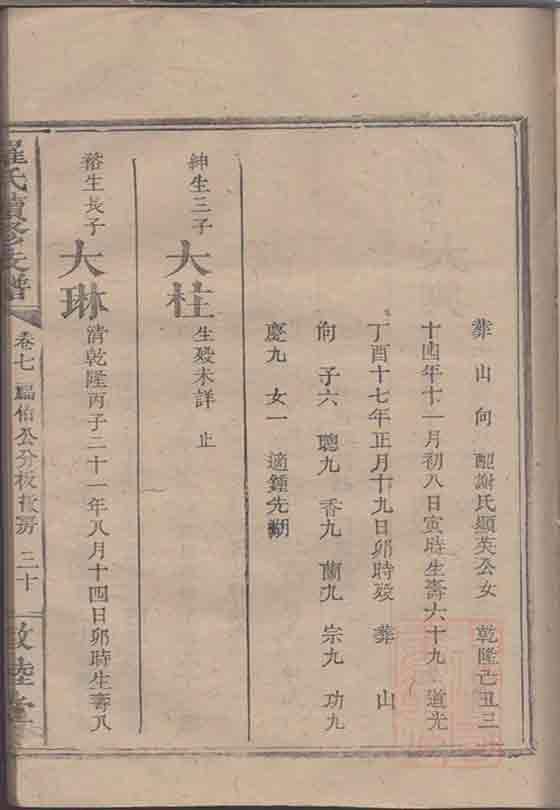 葬 山 向 配謝氏顯英公女 乾隆己丑三
十四年十一月初八日寅時生壽六十九 道光
丁酉十七年正月十九日卯時歿 葬 山
向 子六 聰九 香九 蘭九 宗九 功九
慶九 女一 適鍾先
紳生三子 大柱 生歿未詳 止
大琳 清乾隆丙子二十一年八月十四日卯時生壽八
羅氏續修支譜 卷七 公分 房 二十 敦陸堂